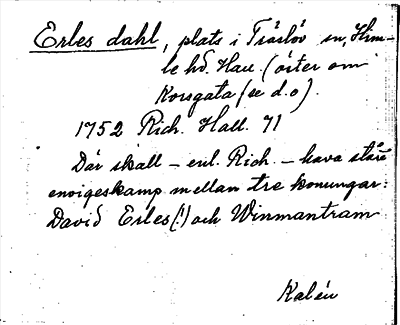 Erles dahl, plats i Träslöv sn, Him-
le hd. Hall. (öster om
Korsgata (se d.o).
1752 Rich. Hall. 71
Där skall – enl. Rich. – hava stått
envigeskamp mellan tre konungar:
David Erles (!) och Winmantram
Kalén